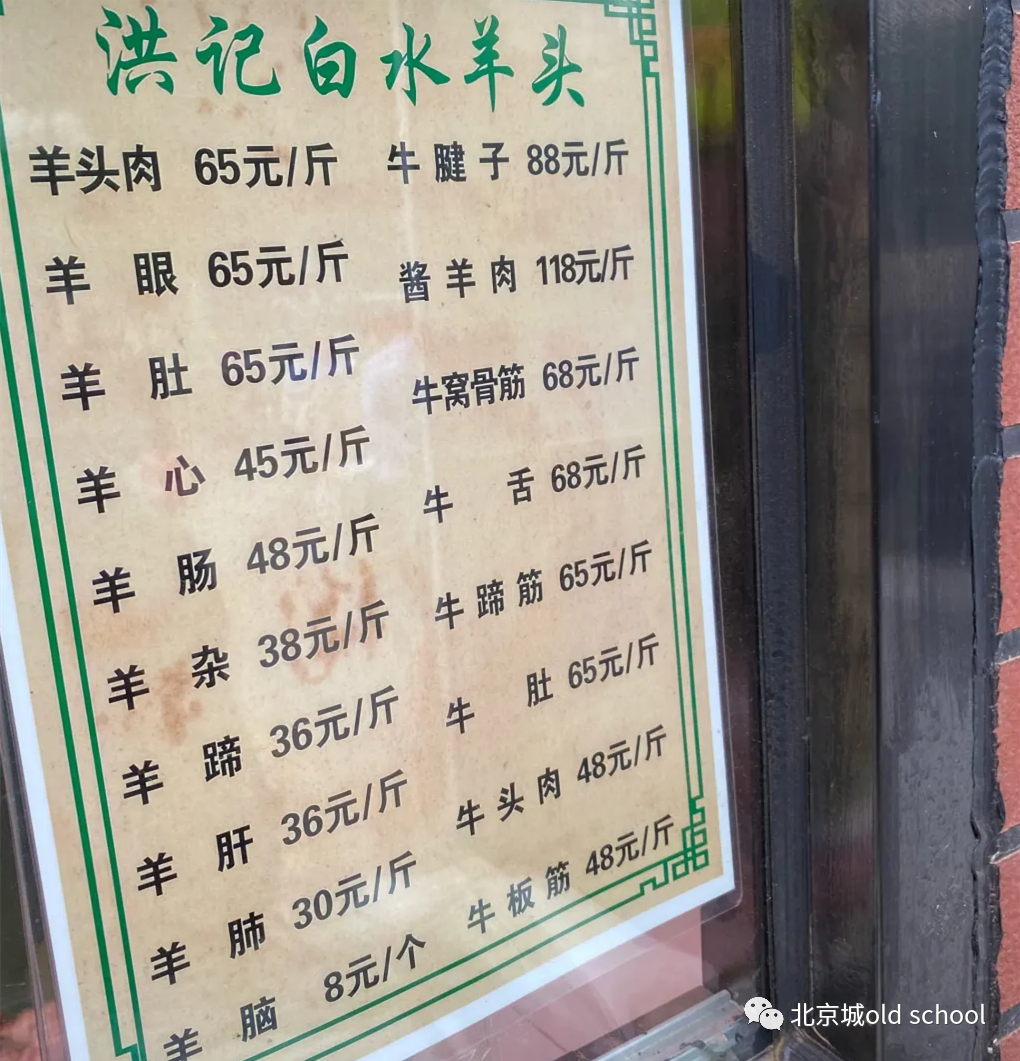 洪记白水羊头
羊头肉 65元/斤 牛腱子 88元/斤
羊眼 65元/斤 酱羊肉 118元/斤
羊肚 65元/斤 牛窝骨筋 68元/斤
羊心 45元/斤 牛舌 68元/斤
羊肠 48元/斤 牛蹄筋 65元/斤
羊杂 38元/斤 牛肚 65元/斤
羊蹄 36元/斤 牛头肉 48元/斤
羊肝 36元/斤 牛板筋 48元/斤
羊肺 30元/斤
羊脑 8元/个
北京城old school